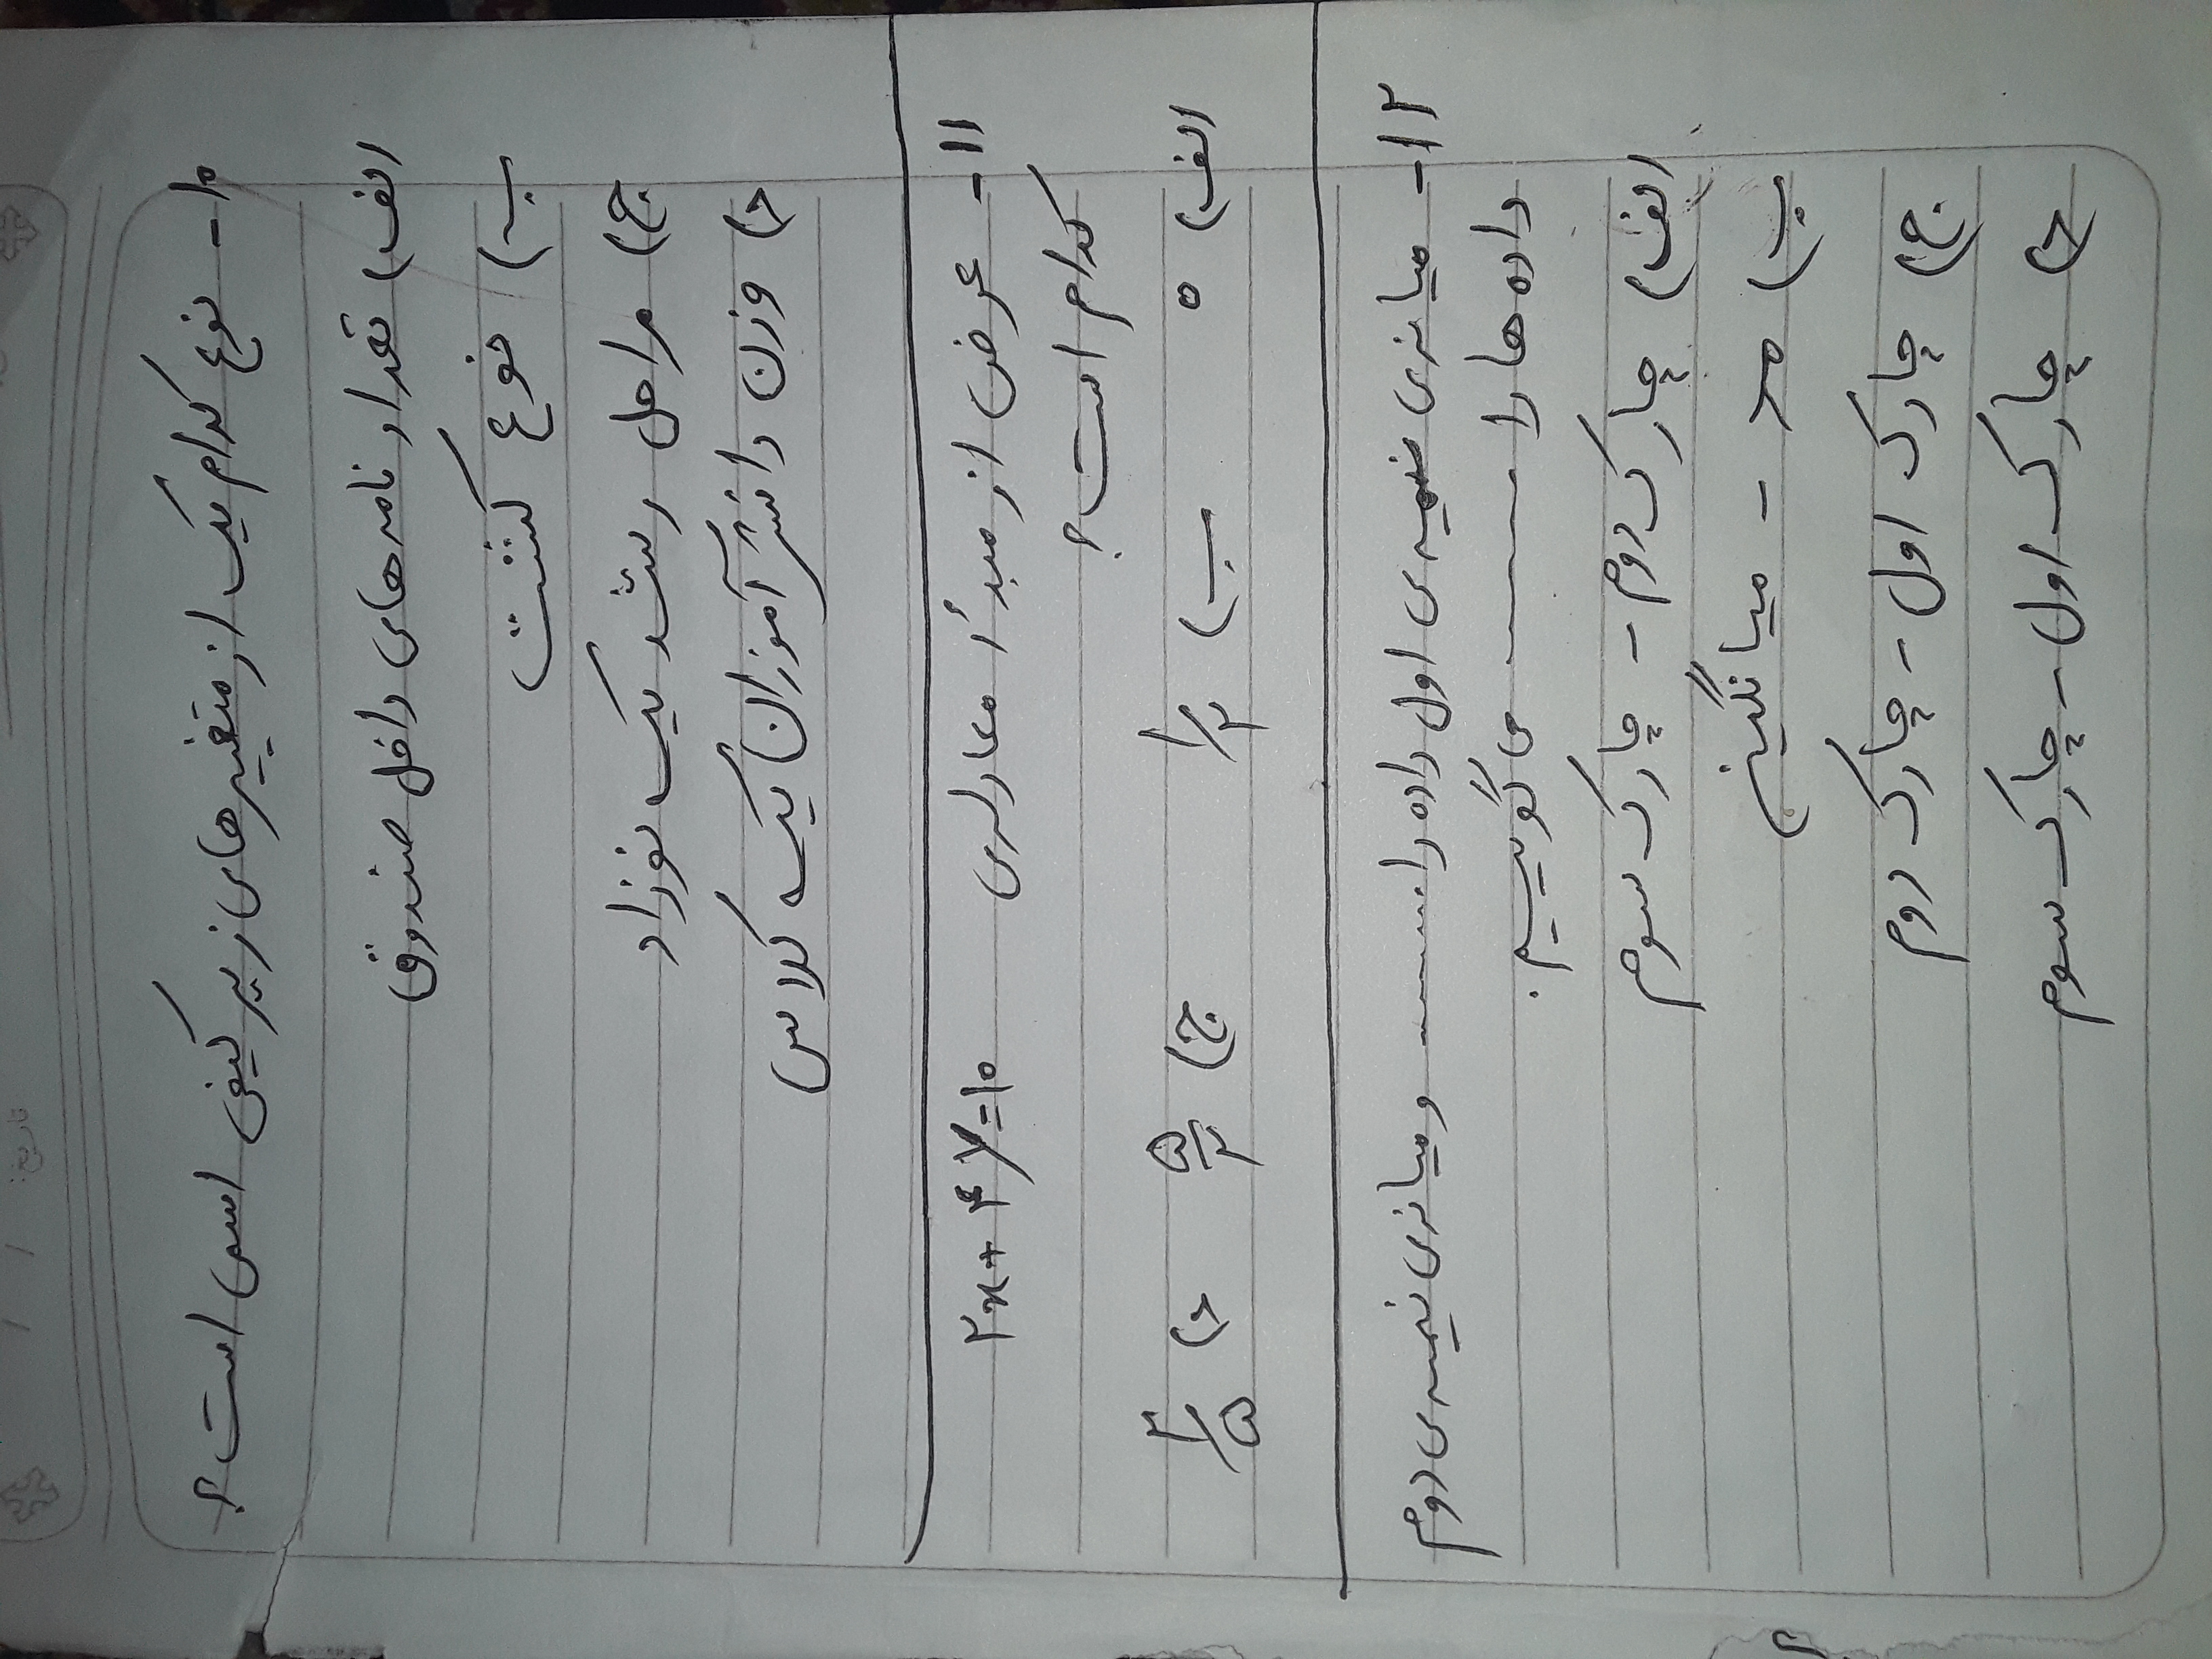 تاریخ: / /
۱۰- نوع کدام یک از متغییرهای زیر کیفی اسمی است؟
الف) تعداد نامه‌های داخل صندوق
ب) نوع کشت
ج) مراحل رشد یک نوزاد
د) وزن دانش آموزان یک کلاس
۱۱- عرض از مبدأ معادله‌ی ۲x + ۴y = ۱۰
کدام است؟
الف) ۵ ب) ۱/۲ ج) ۵/۲ د) ۲/۵
۱۲- میانه‌ی نیمه‌ی اول داده را ........ و میانه‌ی نیمه‌ی دوم
داده ها را ........ می گوییم.
الف) چارک دوم - چارک سوم
ب) مد - میانگین
ج) چارک اول - چارک دوم
د) چارک اول - چارک سوم